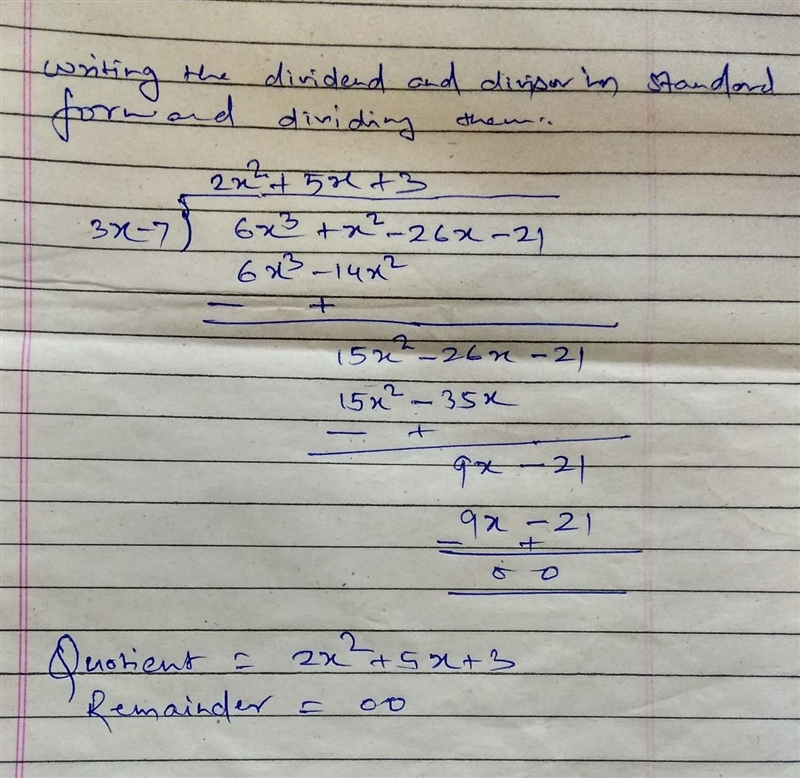 Writing the dividend and divisor in standard
form and dividing them..
2x² + 5x + 3
3x-7) 6x³ + x² - 26x - 21
6x³ - 14x²
- +
15x² - 26x - 21
15x² - 35x
- +
9x - 21
9x - 21
- +
0 0
Quotient = 2x² + 5x + 3
Remainder = 00